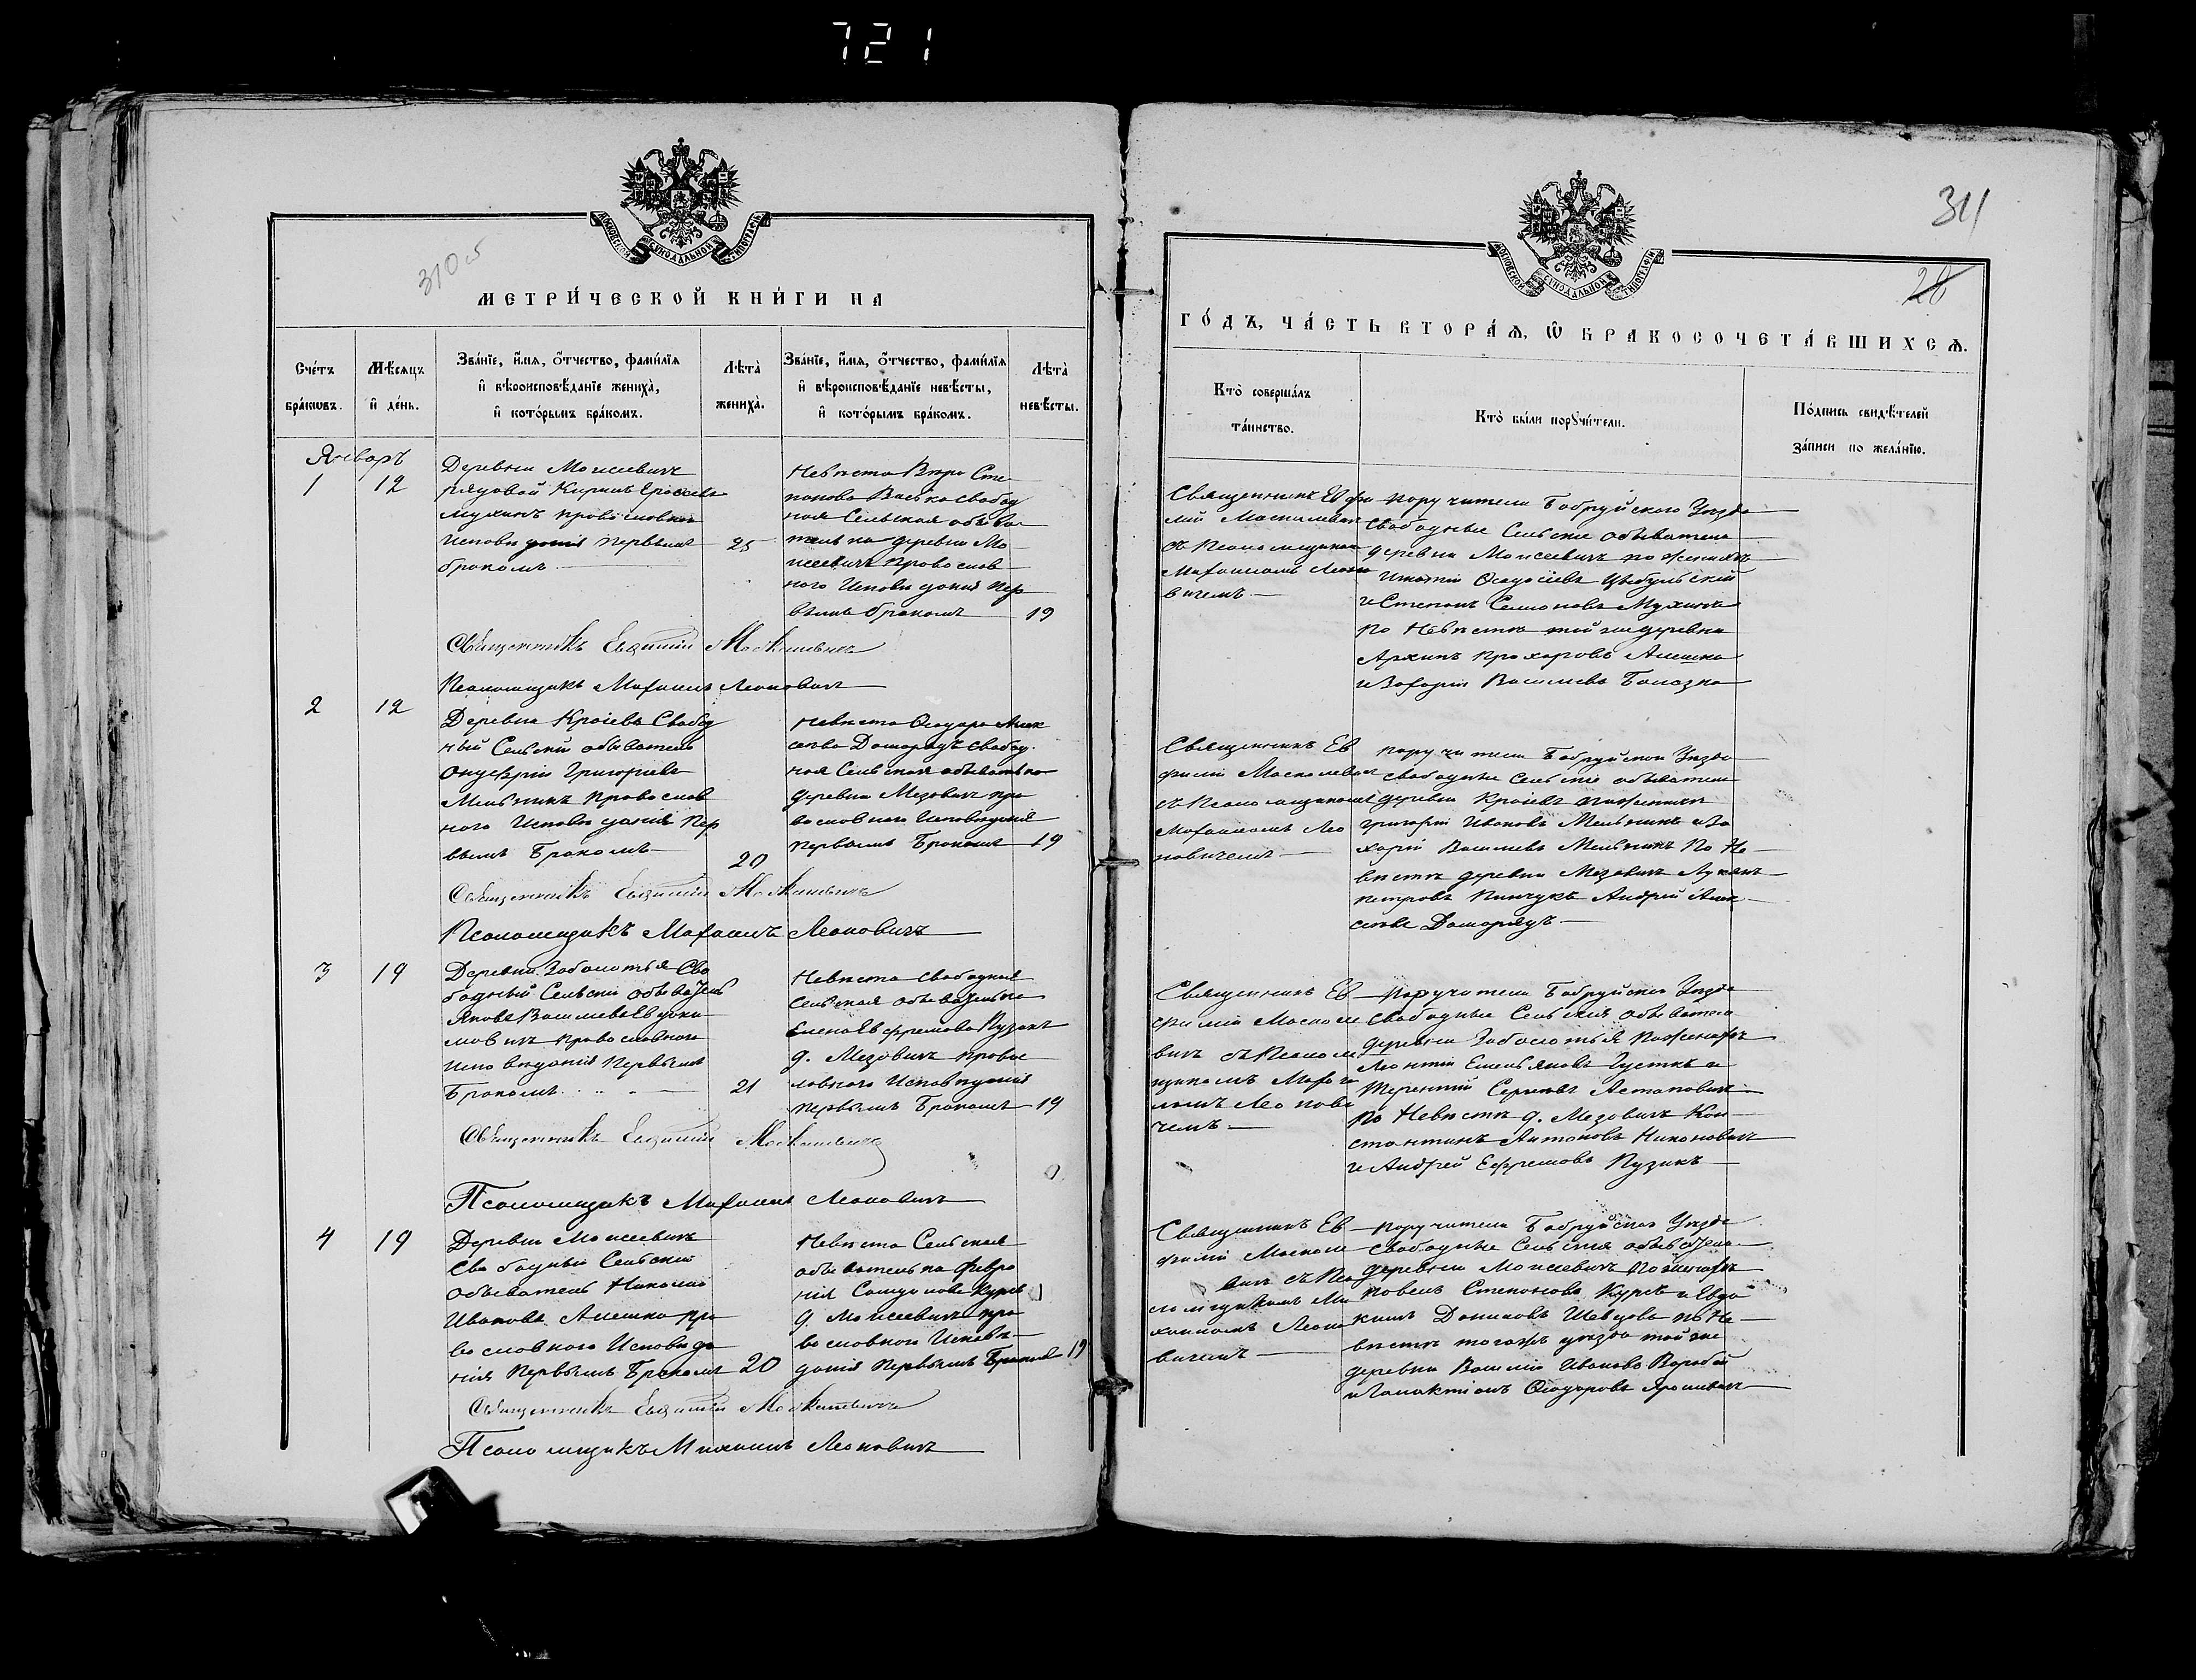 721
310 об
МОСКОВСКОЙ СѴНОДАЛЬНОЙ ТИПОГРАФІИ
МЕТРИ́ЧЕСКОЙ КНИ́ГИ НА
Сче́тъ бра́кѡвъ.
Мѣ́сяцъ и҆ де́нь.
Зва́нїе, и҆́мя, ѻ҆́тчество, фами́лїя
и҆ вѣроисповѣ́данїе жениха̀,
и҆ кото́рымъ бра́комъ.
Лѣта̀ жениха̀.
Зва́нїе, и҆́мя, ѻ҆́тчество, фами́лїя
и҆ вѣроисповѣ́данїе невѣ́сты,
и҆ кото́рымъ бра́комъ.
Лѣта̀ невѣ́сты.
Январь
1
12
Деревни Моисеевичъ
рядовой Кирилъ
Мухинъ православнаго
исповѣданія первымъ
бракомъ
25
Невѣста Вѣра Сте
панова Васька свобод
ная Сельская обыва
телька деревни Мо
исеевичъ Православ
наго Исповѣданія Пер
вымъ бракомъ
19
Священникъ Евфимій Маскилевичъ
Псаломщикъ Михаилъ Леоновичъ
2
12
Деревни Кроіевъ Свобод
ный Сельскій обыватель
Онуфрій Григоріевъ
Мельникъ Православ
наго Исповѣданія Пер
вымъ Бракомъ
20
Невѣста Ѳеодора Алек
сѣева Доморадъ свобод
ная Сельская обывателька
деревни Мезовичъ пра
вославнаго Исповѣданія
первымъ Бракомъ
19
Священникъ Евфимій Маскилевичъ
Псаломщикъ Михаилъ Леоновичъ
3
19
Деревни Заболотья Сво
бодный Сельскій обыватель
Яковъ Василіевъ Евдоки
мовичъ православнаго
исповѣданія Первымъ
Бракомъ
21
Невѣста свободная
Сельская обывателька
Елена Ефремова Пузикъ
д. Мезовичъ правос
лавнаго Исповѣданія
первымъ Бракомъ
19
Священникъ Евфимій Маскилевичъ
Псаломщикъ Михаилъ Леоновичъ
4
19
Деревни Моисеевичъ
Свободный Сельскій
обыватель Николай
Ивановъ Алешко пра
вославнаго Исповѣда
нія Первымъ Бракомъ
20
Невѣста Сельская
обывателька Февро
нія
д. Моисеевичъ пра
вославнаго Исповѣ
данія первымъ Бракомъ
19
Священникъ Евфимій Маскилевичъ
Псаломщикъ Михаилъ Леоновичъ
311
28
МОСКОВСКОЙ СѴНОДАЛЬНОЙ ТИПОГРАФІИ
ГО́ДЪ, ЧА́СТЬ ВТОРА́Я, Ѡ҆ БРАКОСОЧЕТА́ВШИХСЯ.
Кто̀ соверша́лъ та́инство.
Кто̀ бы́ли порꙋчи́тели.
По́дпись свидѣ́телей за́писи по жела́нїю.
Священникъ Евфи
мій Маскилевичъ
съ Псаломщикомъ
Михаиломъ Леоно
вичемъ
Поручители Бобруйскаго Уѣзда
Свободные Сельскіе обыватели
деревни Моисеевичъ по женихѣ
Игнатій Ѳеодосіевъ Цыбульскій
и Степанъ Семіоновъ Мухинъ
по Невѣстѣ той же деревни
Архипъ Прохоровъ Алешко
и Захарій Василіевъ
Священникъ Ев
фимій Маскилевичъ
съ Псаломщикомъ
Михаиломъ Лео
новичемъ
Поручители Бобруйскаго Уѣзда
свободные Сельскіе обыватели
деревни Кроіевъ по женихѣ
Григорій Ивановъ Мельникъ и За
харій Василіевъ Мельникъ По Не
вѣстѣ деревни Мезовичъ Лукьянъ
Петровъ Пинчукъ Андрей Алек
сѣевъ Доморадъ
Священникъ Ев
фимій Маскиле
вичъ съ Псалом
щикомъ Михаи
ломъ Леонови
чемъ
Поручители Бобруйскаго Уѣзда
Свободные Сельскіе обыватели
деревни Заболотья По женихѣ
Леонтій Емельяновъ и
Терентій Сергіевъ Астаповичъ
по Невѣстѣ д. Мезовичъ Кон
стантинъ Антоновъ Никоновичъ
и Андрей Ефремовъ Пузикъ
Священникъ Ев
фимій Маскиле
вичъ съ Пса
ломщикомъ Ми
хаиломъ Леоно
вичемъ
Поручители Бобруйскаго Уѣзда
Свободные Сельскія обыватели
деревни Моисеевичъ По женихѣ
Павелъ Степановъ и Евдо
кимъ Даниловъ Шевцовъ по Не
вѣстѣ того жъ уѣзда той же
деревни Василій Ивановъ Воробей
и Галактіонъ Ѳеодоровъ